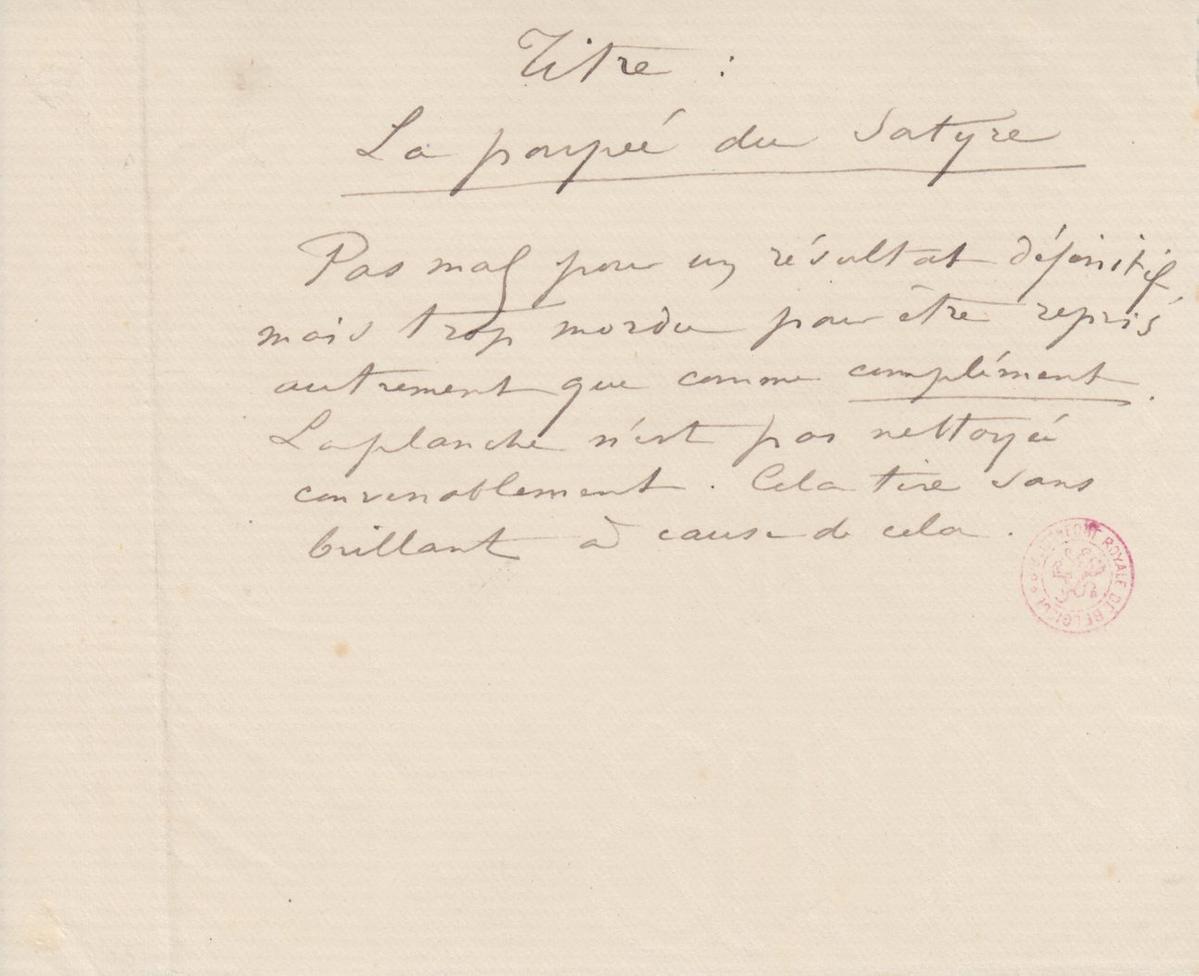 Titre :
La poupée du Satyre
Pas mal pour un résultat définitif
mais trop mordu pour être repris
autrement que comme complément.
La planche n'est pas nettoyée
convenablement. Cela tire sans
brillant à cause de cela.
BIBLIOTHEQUE ROYALE DE BELGIQUE